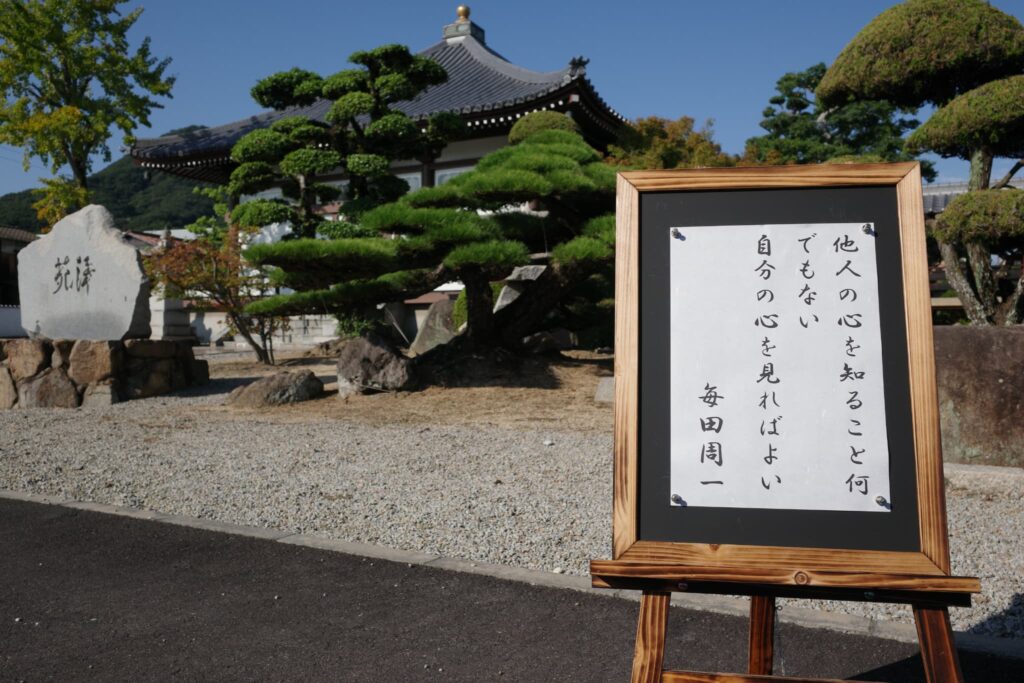 他人の心を知ること何
でもない
自分の心を見ればよい
毎田周一
苑